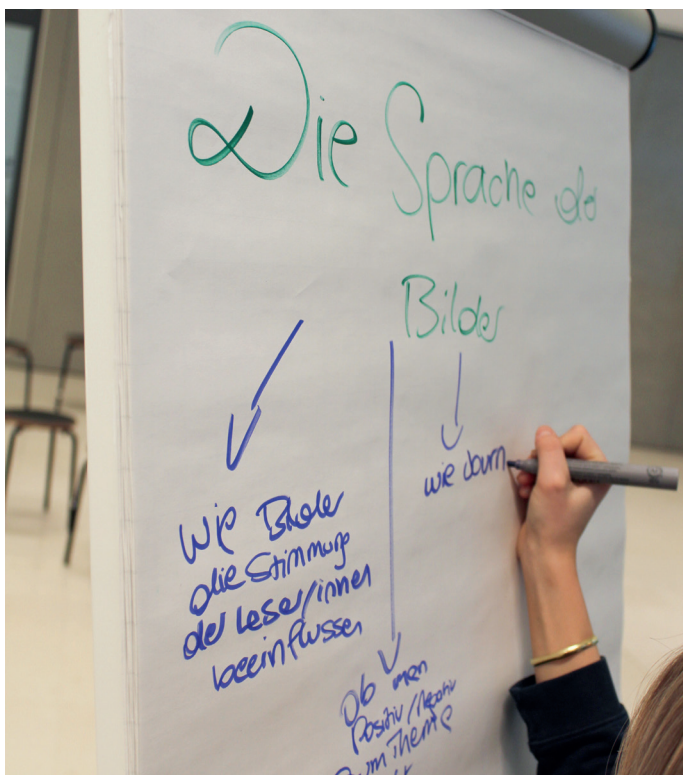 Die Sprache der
Bilder
Wie Bilder
die Stimmung
der Leser/innen
beeinflussen
Ob men
Positiv/Negativ
zum Thema
wie Journ